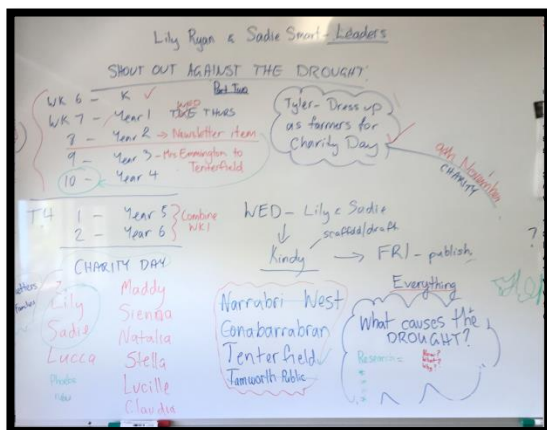 Lily Ryan & Sadie Smart - Leaders
SHOUT OUT AGAINST THE DROUGHT!
Part Two
WK 6 - K ✓
WED
WK 7 - Year 1 TUE THURS
8 - Year 2 → Newsletter item
9 - Year 3 - Mrs Emmington to
Tenterfield
10 - Year 4
T4 1 - Year 5 } Combine
2 - Year 6 } WK1
Tyler - Dress up
as farmers for
Charity Day
9th November
CHARITY
WED - Lily & Sadie
scaffold/draft
Kindy → FRI - publish
?
CHARITY DAY
Lily
Sadie
Lucca
Phoebe
Maddy
Sienna
Natalia
Stella
Lucille
Claudia
Narrabri West
Conabarrabran
Tenterfield
Tamworth Public
Everything
What causes the
DROUGHT?
Research =
How?
What?
Why?